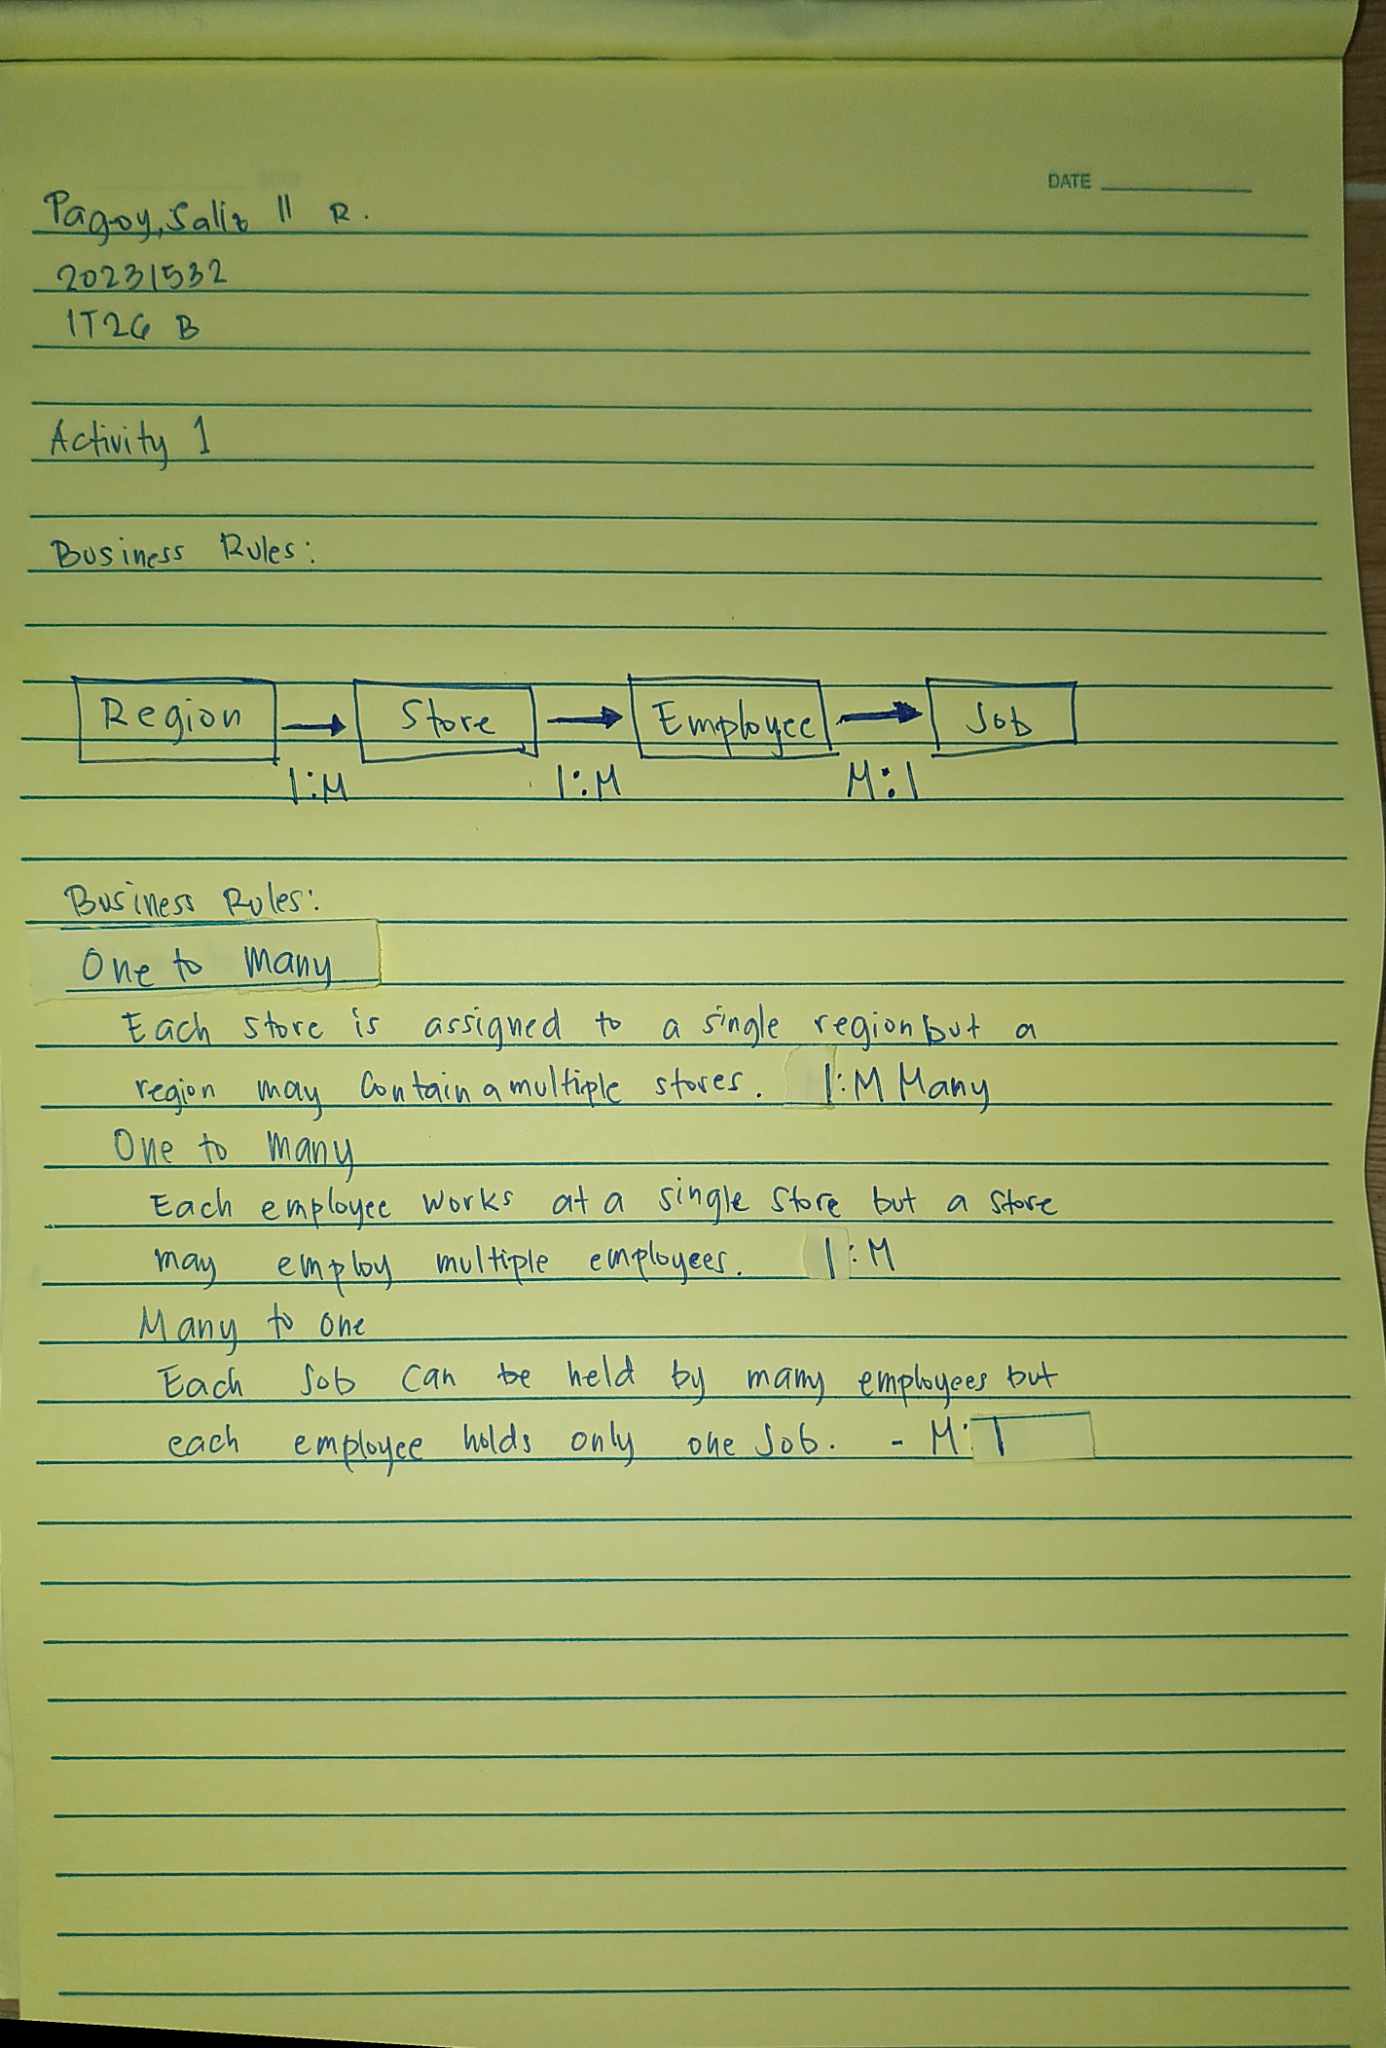 DATE
Pagoy, Saliz II R.
20231532
IT2G B
Activity 1
Business Rules:
Region Store Employee Job
1:M 1:M M:1
Business Rules:
One to Many
Each store is assigned to a single region but a
region may Contain a multiple stores. 1:M Many
One to Many
Each employee works at a single store but a store
may employ multiple employees. 1:M
Many to one
Each Job can be held by many employees but
each employee holds only one Job. - M:1